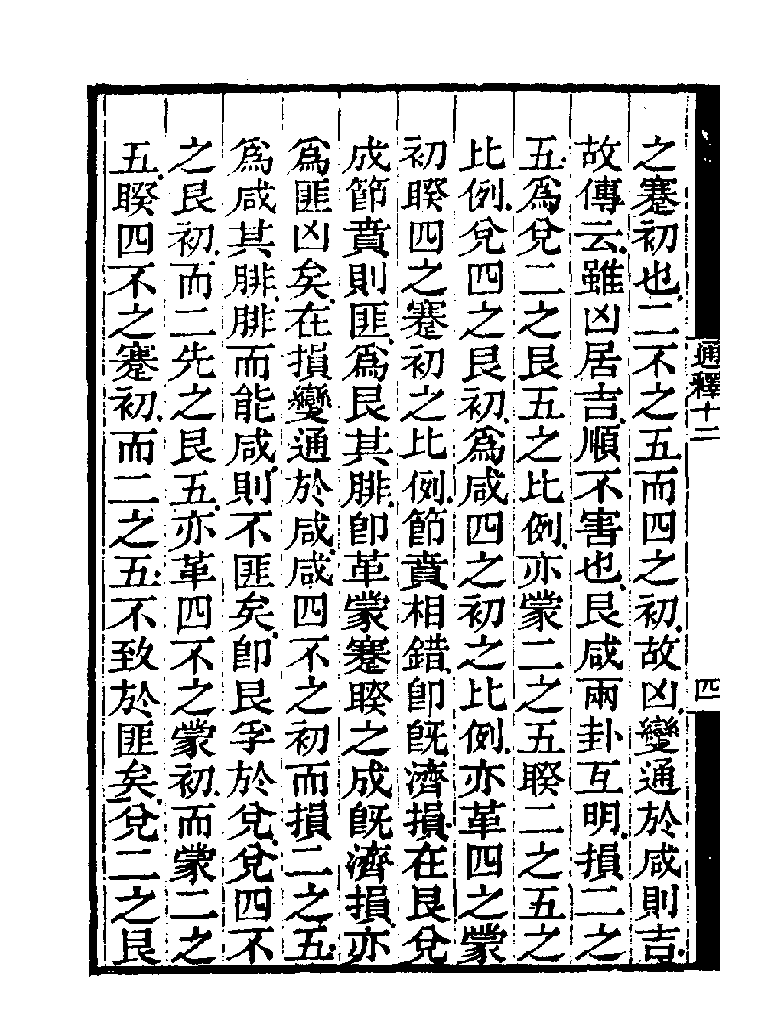 之蹇初也二不之五而四之初故凶變通於咸則吉
故傳云雖凶居吉順不害也艮咸兩卦互明損二之
五爲兌二之艮五之比例亦蒙二之五睽二之五之
比例兌四之艮初爲咸四之初之比例亦革四之蒙
初睽四之蹇初之比例節賁相錯卽旣濟損在艮兌
成節賁則匪爲艮其腓卽革蒙蹇睽之成旣濟損亦
爲匪凶矣在損變通於咸咸四不之初而損二之五
爲咸其腓腓而能咸則不匪矣卽艮孚於兌兌四不
之艮初而二先之艮五亦革四不之蒙初而蒙二之
五睽四不之蹇初而二之五不致於匪矣兌二之艮
通釋十二
四